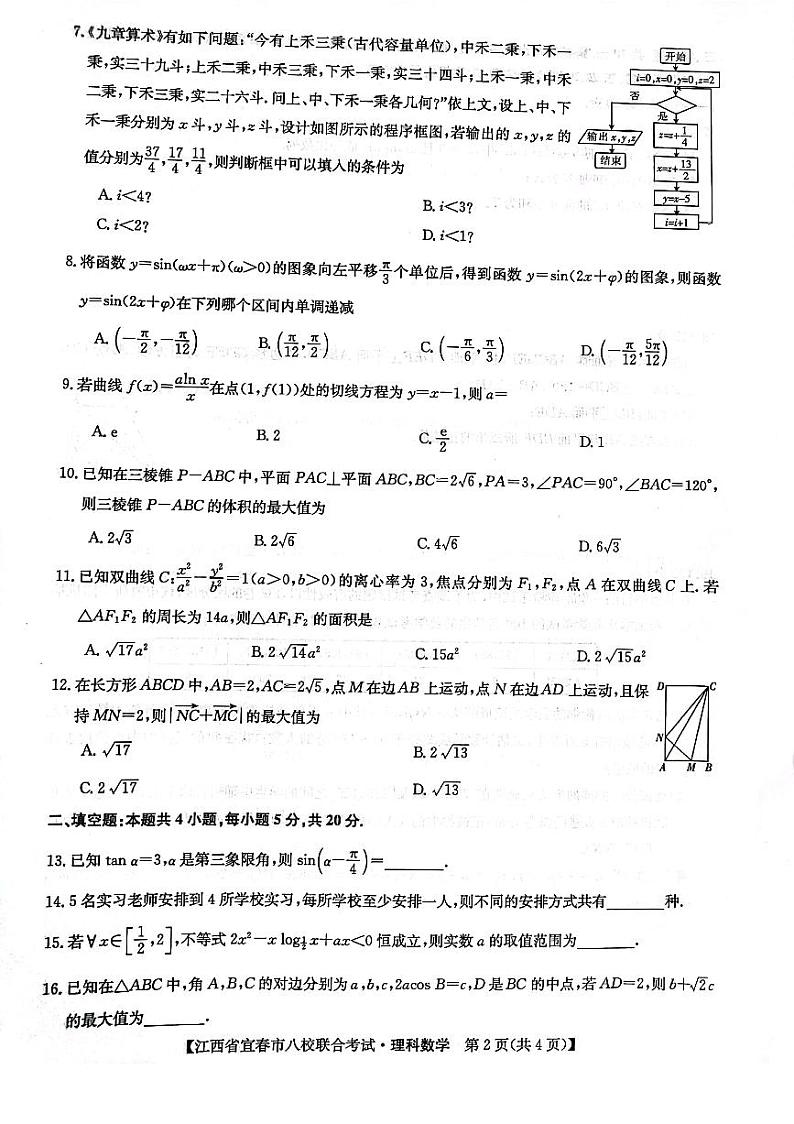 7.《九章算术》有如下问题:“今有上禾三秉(古代容量单位),中禾二秉,下禾一
秉,实三十九斗;上禾二秉,中禾三秉,下禾一秉,实三十四斗;上禾一秉,中禾
二秉,下禾三秉,实二十六斗.问上、中、下禾一秉各几何?”依上文,设上、中、下
禾一秉分别为 x 斗,y 斗,z 斗,设计如图所示的程序框图,若输出的 x,y,z 的
值分别为37/4,17/4,11/4,则判断框中可以填入的条件为
A. i<4?
B. i<3?
C. i<2?
D. i<1?
开始
i=0,x=0,y=0,z=2
否
是
输出 x,y,z
结束
z=z+1/4
x=z+13/2
y=x-5
i=i+1
8.将函数 y=sin(ωx+π)(ω>0)的图象向左平移π/3个单位后,得到函数 y=sin(2x+φ)的图象,则函数
y=sin(2x+φ)在下列哪个区间内单调递减
A. (-π/2,-π/12) B. (π/12,π/2) C. (-π/6,π/3) D. (-π/12,5π/12)
9.若曲线 f(x)=aln x/x在点(1,f(1))处的切线方程为 y=x-1,则 a=
A. e B. 2 C. e/2 D. 1
10.已知在三棱锥 P-ABC 中,平面 PAC⊥平面 ABC,BC=2√6,PA=3,∠PAC=90°,∠BAC=120°,
则三棱锥 P-ABC 的体积的最大值为
A. 2√3 B. 2√6 C. 4√6 D. 6√3
11.已知双曲线 C:x²/a²-y²/b²=1(a>0,b>0)的离心率为 3,焦点分别为 F₁,F₂,点 A 在双曲线 C 上.若
△AF₁F₂ 的周长为 14a,则△AF₁F₂ 的面积是
A. √17a² B. 2√14a² C. 15a² D. 2√15a²
12.在长方形 ABCD 中,AB=2,AC=2√5,点 M 在边 AB 上运动,点 N 在边 AD 上运动,且保
持 MN=2,则|NC+MC|的最大值为
A. √17 B. 2√13
C. 2√17 D. √13
D C
N
A M B
二、填空题:本题共 4 小题,每小题 5 分,共 20 分.
13.已知 tan α=3,α 是第三象限角,则 sin(α-π/4)=______.
14. 5 名实习老师安排到 4 所学校实习,每所学校至少安排一人,则不同的安排方式共有______种.
15.若∀x∈[1/2,2],不等式 2x²-x log½x+ax<0 恒成立,则实数 a 的取值范围为______.
16.已知在△ABC 中,角 A,B,C 的对边分别为 a,b,c,2acos B=c,D 是 BC 的中点,若 AD=2,则 b+√2c
的最大值为______.
【江西省宜春市八校联合考试·理科数学 第 2 页(共 4 页)】